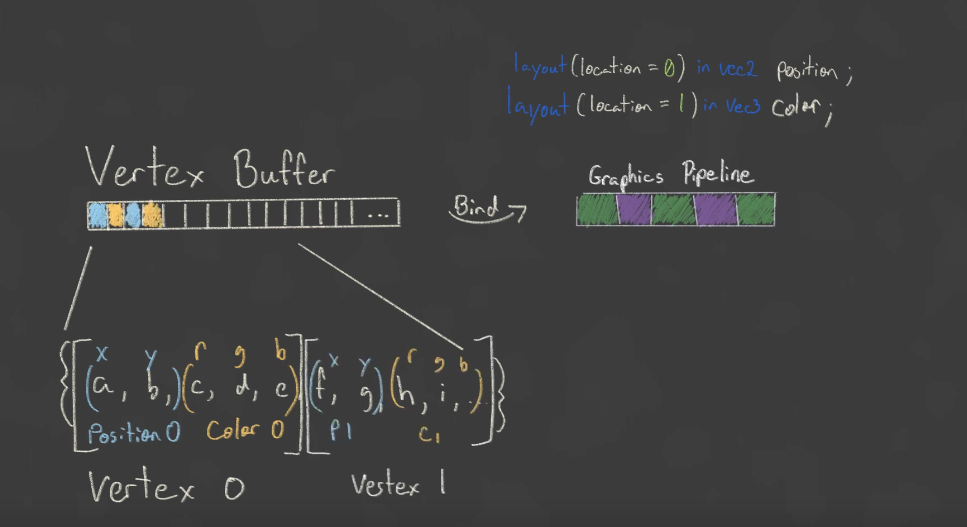 layout (location = 0) in vec2 position;
layout (location = 1) in vec3 color;
Vertex Buffer
...
Bind
Graphics Pipeline
x y r g b x y r g b
{[(a, b,)(c, d, e)][(f, g,)(h, i, ..)]}
Position 0 Color 0 P1 C1
Vertex 0 Vertex 1